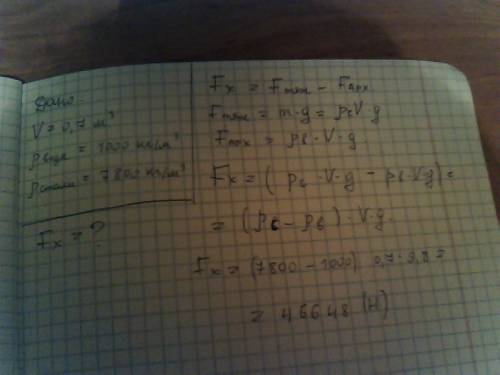 Дано:
V = 0,7 м³
ρводы = 1000 кг/м³
ρстали = 7800 кг/м³
Fx = ?
Fx = Fтяж - Fарх
Fтяж = m·g = ρсV·g
Fарх = ρв·V·g.
Fx = (ρс·V·g - ρв·V·g) =
= (ρс - ρв)·V·g.
Fx = (7800 - 1000)·0,7·9,8 =
= 46648 (Н)